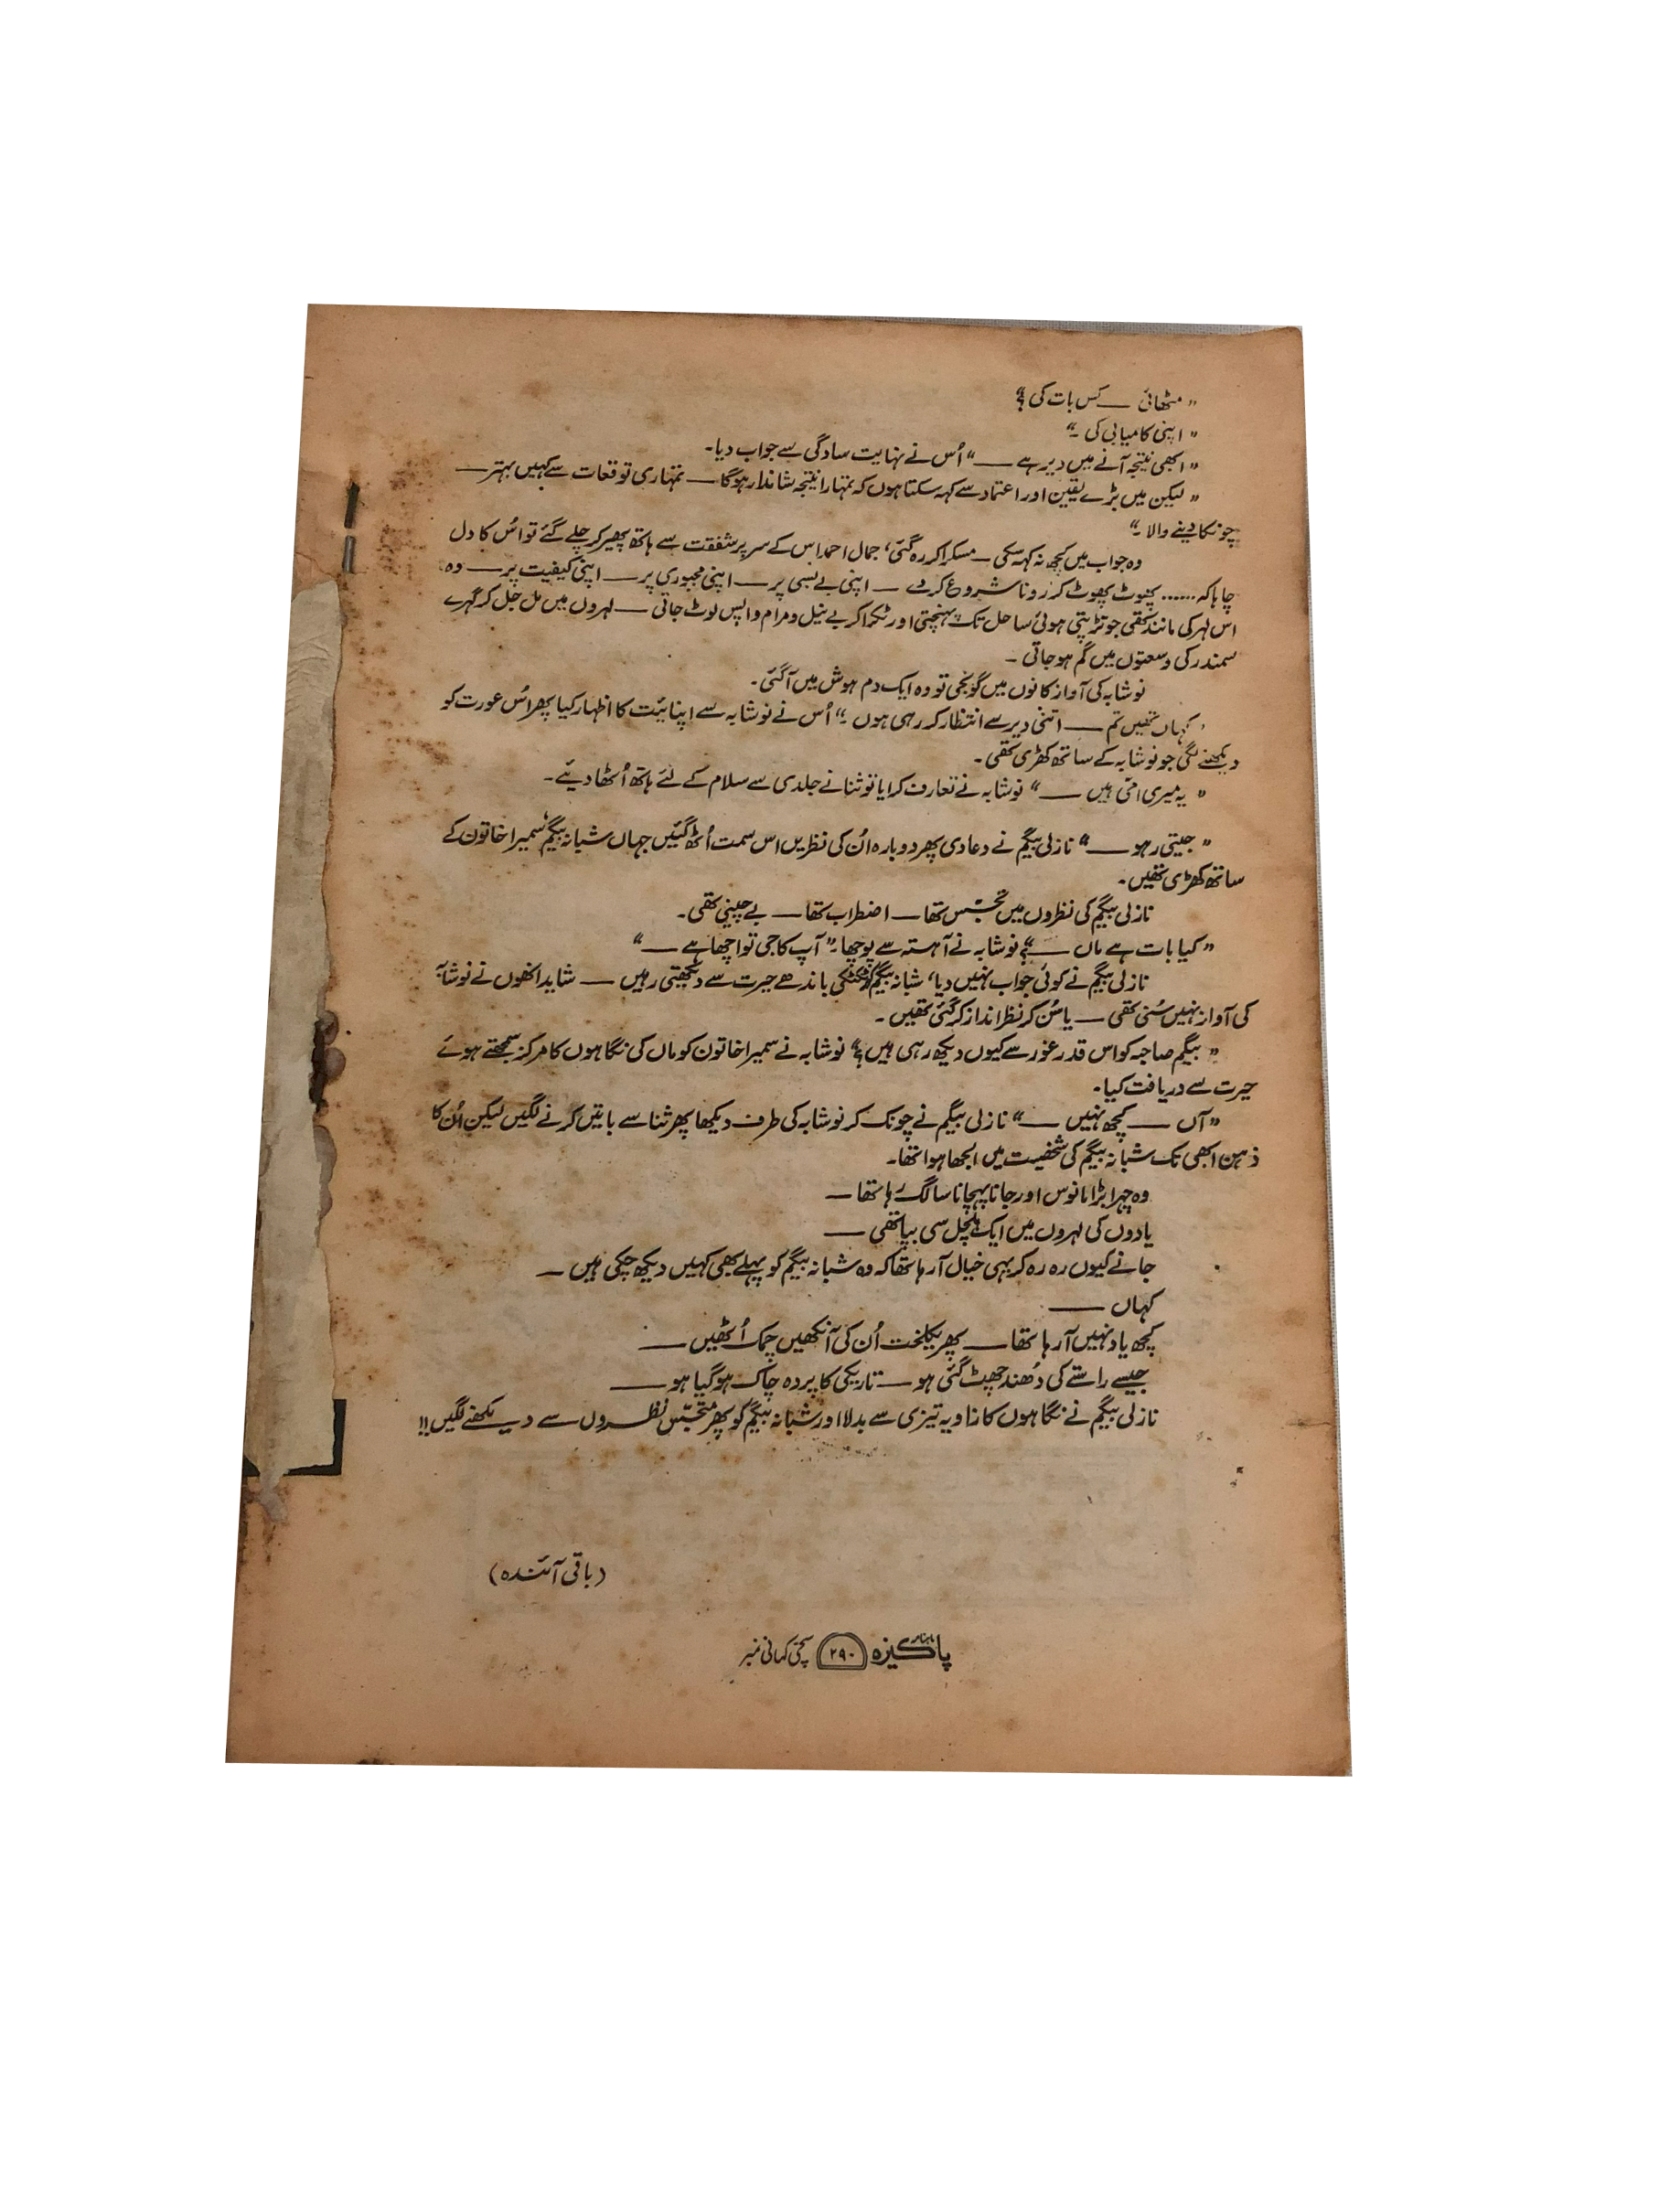 ”مٹھائی ـــــ کس بات کی؟“
”اپنی کامیابی کی۔“
”ابھی نتیجہ آنے میں دیر ہے ـــــ“ اُس نے نہایت سادگی سے جواب دیا۔
”لیکن میں بڑے یقین اور اعتماد سے کہہ سکتا ہوں کہ تمہارا نتیجہ شاندار ہو گا ـــــ تمہاری توقعات سے کہیں بہتر ـــــ
چونکا دینے والا۔“
وہ جواب میں کچھ نہ کہہ سکی ـــ مسکرا کر رہ گئی، جمال احمد اس کے سر پر شفقت سے ہاتھ پھیر کر چلے گئے تو اُس کا دل
چاہا کہ ...... پھوٹ پھوٹ کر رونا شروع کر دے ـــ اپنی بے بسی پر ـــــ اپنی مجبوری پر ـــــ اپنی کیفیت پر ـــــ وہ
اس لہر کی مانند تھی جو تڑپتی ہوئی ساحل تک پہنچتی اور ٹکرا کر بے نیل و مرام واپس لوٹ جاتی ـــــ لہروں میں مل جل کر گہرے
سمندر کی وسعتوں میں گم ہو جاتی ۔
نوشابہ کی آواز کانوں میں گونجی تو وہ ایک دم ہوش میں آ گئی۔
’کہاں تھیں تم ـــــ اتنی دیر سے انتظار کر رہی ہوں۔“ اُس نے نوشابہ سے اپنائیت کا اظہار کیا پھر اُس عورت کو
دیکھنے لگی جو نوشابہ کے ساتھ کھڑی تھی۔
”یہ میری امّی ہیں ـــــ“ نوشابہ نے تعارف کرایا تو ثنا نے جلدی سے سلام کے لئے ہاتھ اُٹھا دیئے۔
”جیتی رہو ـــــ“ نازلی بیگم نے دعا دی پھر دوبارہ اُن کی نظریں اس سمت اُٹھ گئیں جہاں شبانہ بیگم، سمیرا خاتون کے
ساتھ کھڑی تھیں۔
نازلی بیگم کی نظروں میں تجسّس تھا ـــــ اضطراب تھا ـــــ بے چینی تھی۔
”کیا بات ہے ماں ـــــ؟“ نوشابہ نے آہستہ سے پوچھا۔ ”آپ کا جی تو اچھا ہے ـــــ“
نازلی بیگم نے کوئی جواب نہیں دیا، شبانہ بیگم کو ٹکٹکی باندھے حیرت سے دیکھتی رہیں ـــــ شاید انھوں نے نوشابہ
کی آواز نہیں سُنی تھی ـــــ یا سُن کر نظر انداز کر گئی تھیں ۔
”بیگم صاحبہ کو اس قدر غور سے کیوں دیکھ رہی ہیں؟“ نوشابہ نے سمیرا خاتون کو ماں کی نگاہوں کا مرکز سمجھتے ہوئے
حیرت سے دریافت کیا۔
”آں ـــــ کچھ نہیں ـــــ“ نازلی بیگم نے چونک کر نوشابہ کی طرف دیکھا پھر ثنا سے باتیں کرنے لگیں لیکن اُن کا
ذہن ابھی تک شبانہ بیگم کی شخصیت میں الجھا ہوا تھا۔
وہ چہرا بڑا مانوس اور جانا پہچانا سا لگ رہا تھا ـــــ
یادوں کی لہروں میں ایک ہلچل سی بپا تھی ـــــ
جانے کیوں رہ رہ کر یہی خیال آ رہا تھا کہ وہ شبانہ بیگم کو پہلے بھی کہیں دیکھ چکی ہیں ـــــ
کہاں ـــــ
کچھ یاد نہیں آ رہا تھا ـــــ پھر یکلخت اُن کی آنکھیں چمک اُٹھیں ـــــ
جیسے راستے کی دُھند چھٹ گئی ہو ـــــ تاریکی کا پردہ چاک ہو گیا ہو ـــــ
نازلی بیگم نے نگاہوں کا زاویہ تیزی سے بدلا اور شبانہ بیگم کو پھر متجسّس نظروں سے دیکھنے لگیں!!
(باقی آئندہ)
ماہنامہ پاکیزہ ۲۹۰ سچی کہانی نمبر